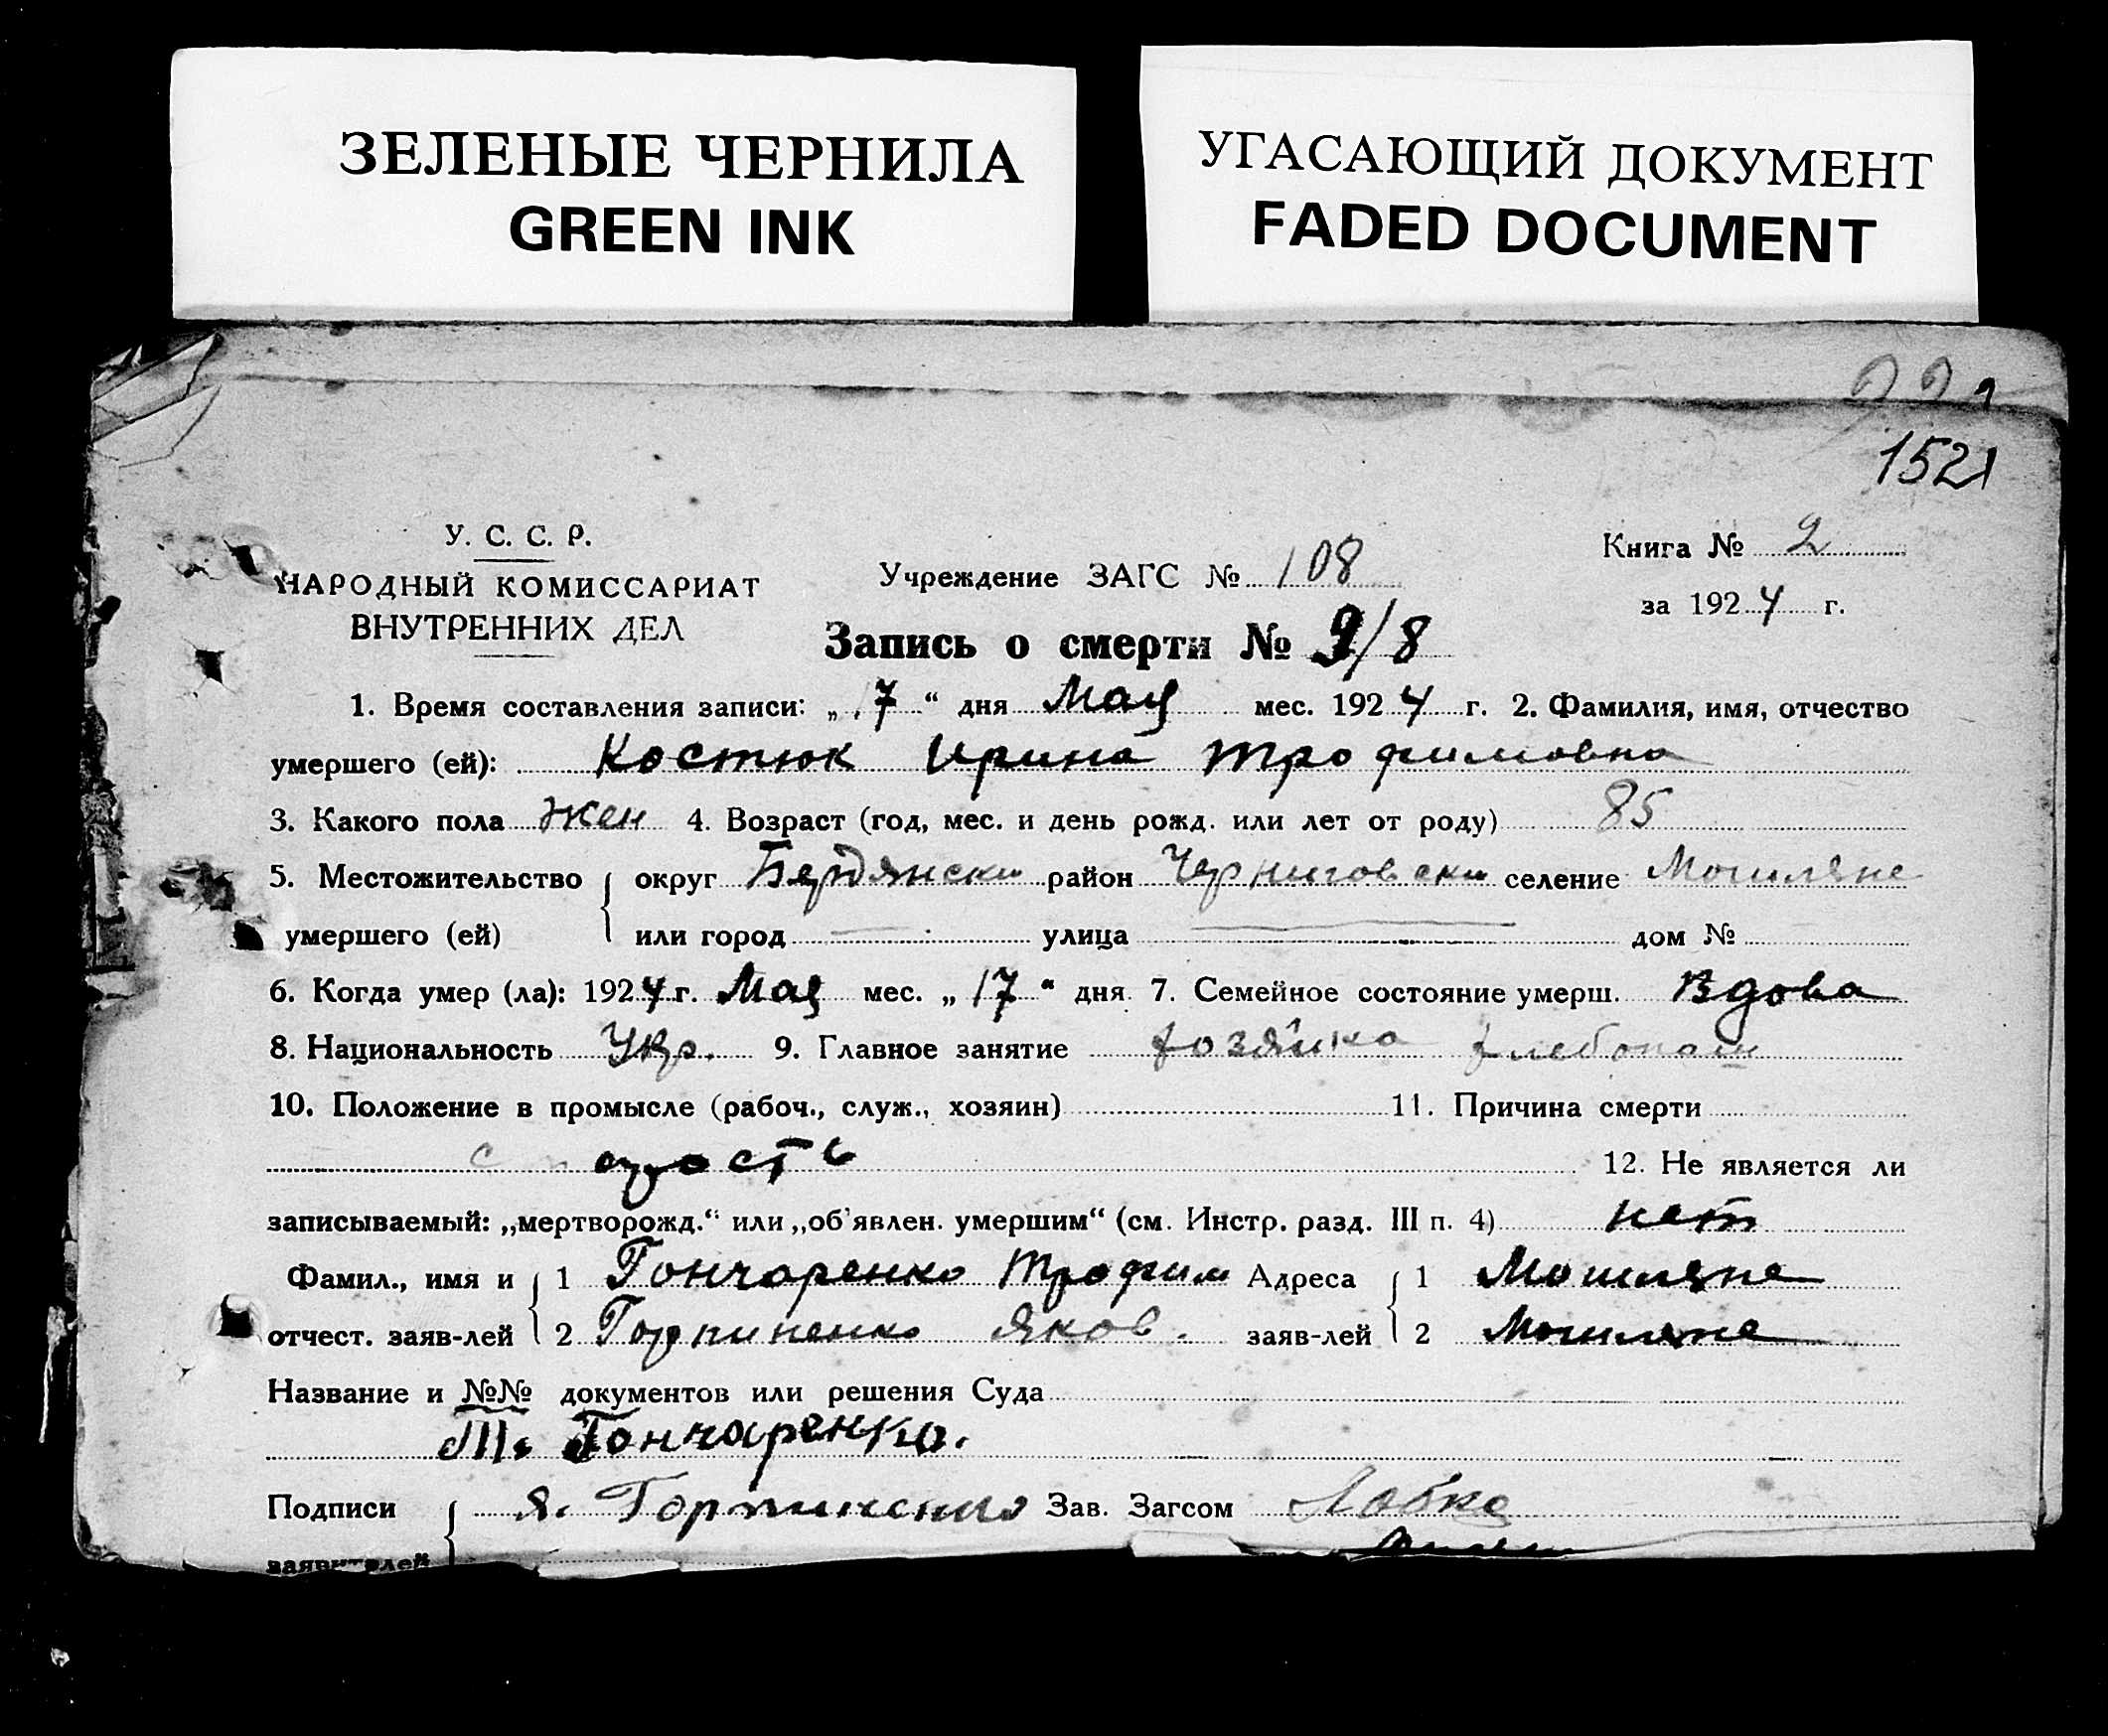 ЗЕЛЕНЫЕ ЧЕРНИЛА
GREEN INK
УГАСАЮЩИЙ ДОКУМЕНТ
FADED DOCUMENT
1521
У. С. С. Р.
НАРОДНЫЙ КОМИССАРИАТ
ВНУТРЕННИХ ДЕЛ
Учреждение ЗАГС № 108
Книга № 2
за 1924 г.
Запись о смерти № 9/8
1. Время составления записи: „17“ дня Мая мес. 1924 г. 2. Фамилия, имя, отчество
умершего (ей): Костюк Ирина Трофимовна
3. Какого пола жен 4. Возраст (год, мес. и день рожд. или лет от роду) 85
5. Местожительство округ Бердянски район Черниговски селение Могиляне
умершего (ей) или город улица дом №
6. Когда умер (ла): 1924 г. Мая мес. „17“ дня 7. Семейное состояние умерш. Вдова
8. Национальность Укр. 9. Главное занятие хозяйка хлебопаш
10. Положение в промысле (рабоч., служ., хозяин) 11. Причина смерти
старость 12. Не является ли
записываемый: „мертворожд.“ или „об'явлен. умершим“ (см. Инстр. разд. III п. 4) нет
Фамил., имя и 1 Гончаренко Трофим Адреса 1 Могиляне
отчест. заяв-лей 2 Горпиненко Яков. заяв-лей 2 Могиляне
Название и №№ документов или решения Суда
Т. Гончаренко.
Подписи Я. Горпиненко Зав. Загсом
заявителей